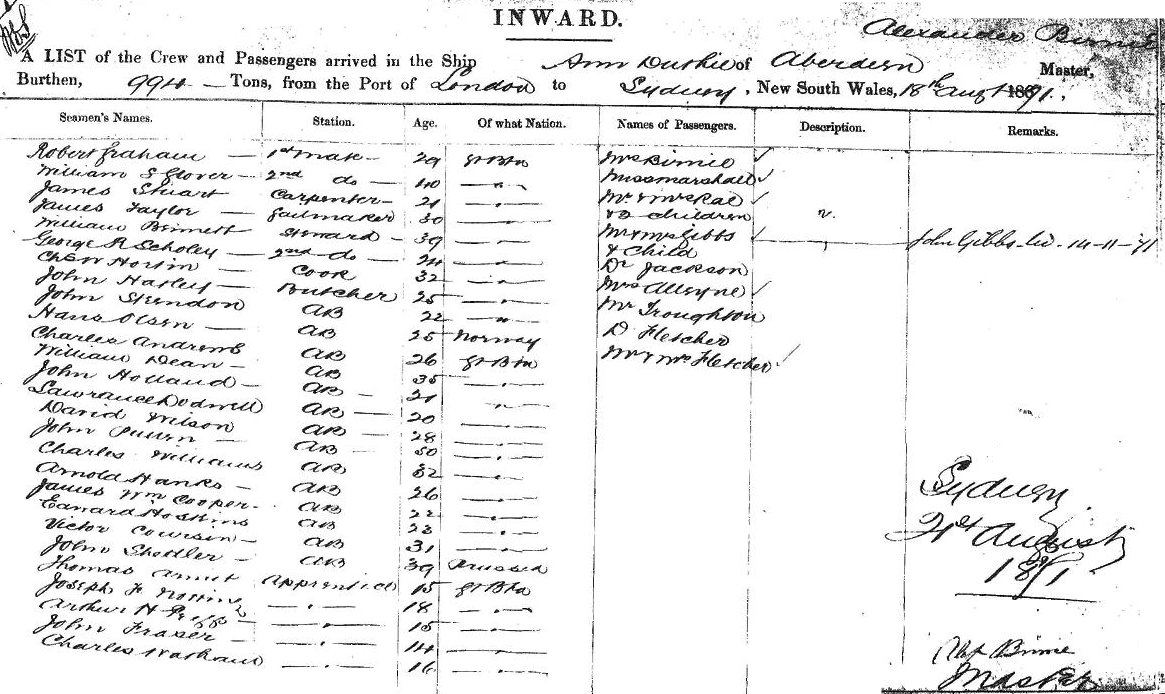 INWARD.
Alexander Birnie
A LIST of the Crew and Passengers arrived in the Ship Ann Duthie of Aberdeen Master,
Burthen, 994 Tons, from the Port of London to Sydney, New South Wales, 18th Augt 1871.
Seamen's Names. Station. Age. Of what Nation. Names of Passengers. Description. Remarks.
Robert Graham — 1st Mate — 29 Gt Btn Mrs Birnie ✓
William S Glover — 2nd do — 40 — " — Miss Marshall ✓
James Stuart Carpenter — 21 — " — Mr & Mrs Rae ✓
James Taylor — Sailmaker 30 — " — & 3 children
William Bennett Steward — 39 — " — Mr & Mrs Gibbs John Gibbs 14-11-71
George R Scholey — 2nd do — 24 — " — & Child
Horsin — Cook 32 — " — Dr Jackson
John Hatley — Butcher 25 — " — Mrs Alleyne ✓
John AB 22 — " — Mr Troughton
Hans Olsen — AB 25 Norway D Fletcher
Charles Andrews AB 26 Gt Btn Mr & Mrs Fletcher ✓
William Dean — AB 35 — " —
John Holland — AB — 21 — " —
Lawrance Dodwell AB — 20 — " —
David Wilson AB — 28 — " —
John — AB — 50 — " —
Charles Williams AB 32 — " —
Arnold Hanks — AB 26 — " —
James Wm Cooper — AB 22 — " —
Edward Hoskins AB 23 — " —
Victor — AB 31 — " —
John — AB 39 Prussia
Thomas Apprentice 15 Gt Btn
Joseph F — " — 18 — " —
Arthur H — " — 15 — " —
John Fraser — — " — 14 — " —
Charles — " — 16 — " —
Sydney
21st August
1871
Alex Birnie
Master